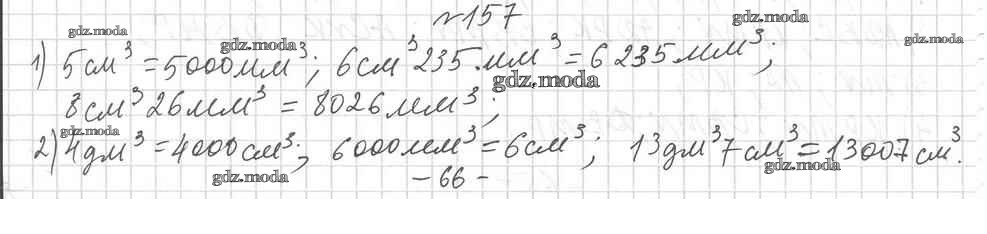 №157
1) 5 см³ = 5000 мм³; 6 см³ 235 мм³ = 6235 мм³;
8 см³ 26 мм³ = 8026 мм³;
2) 4 дм³ = 4000 см³; 6000 мм³ = 6 см³; 13 дм³ 7 см³ = 13007 см³.
- 66 -
gdz.moda
gdz.moda
gdz.moda
gdz.moda
gdz.moda
gdz.moda
gdz.moda
gdz.moda